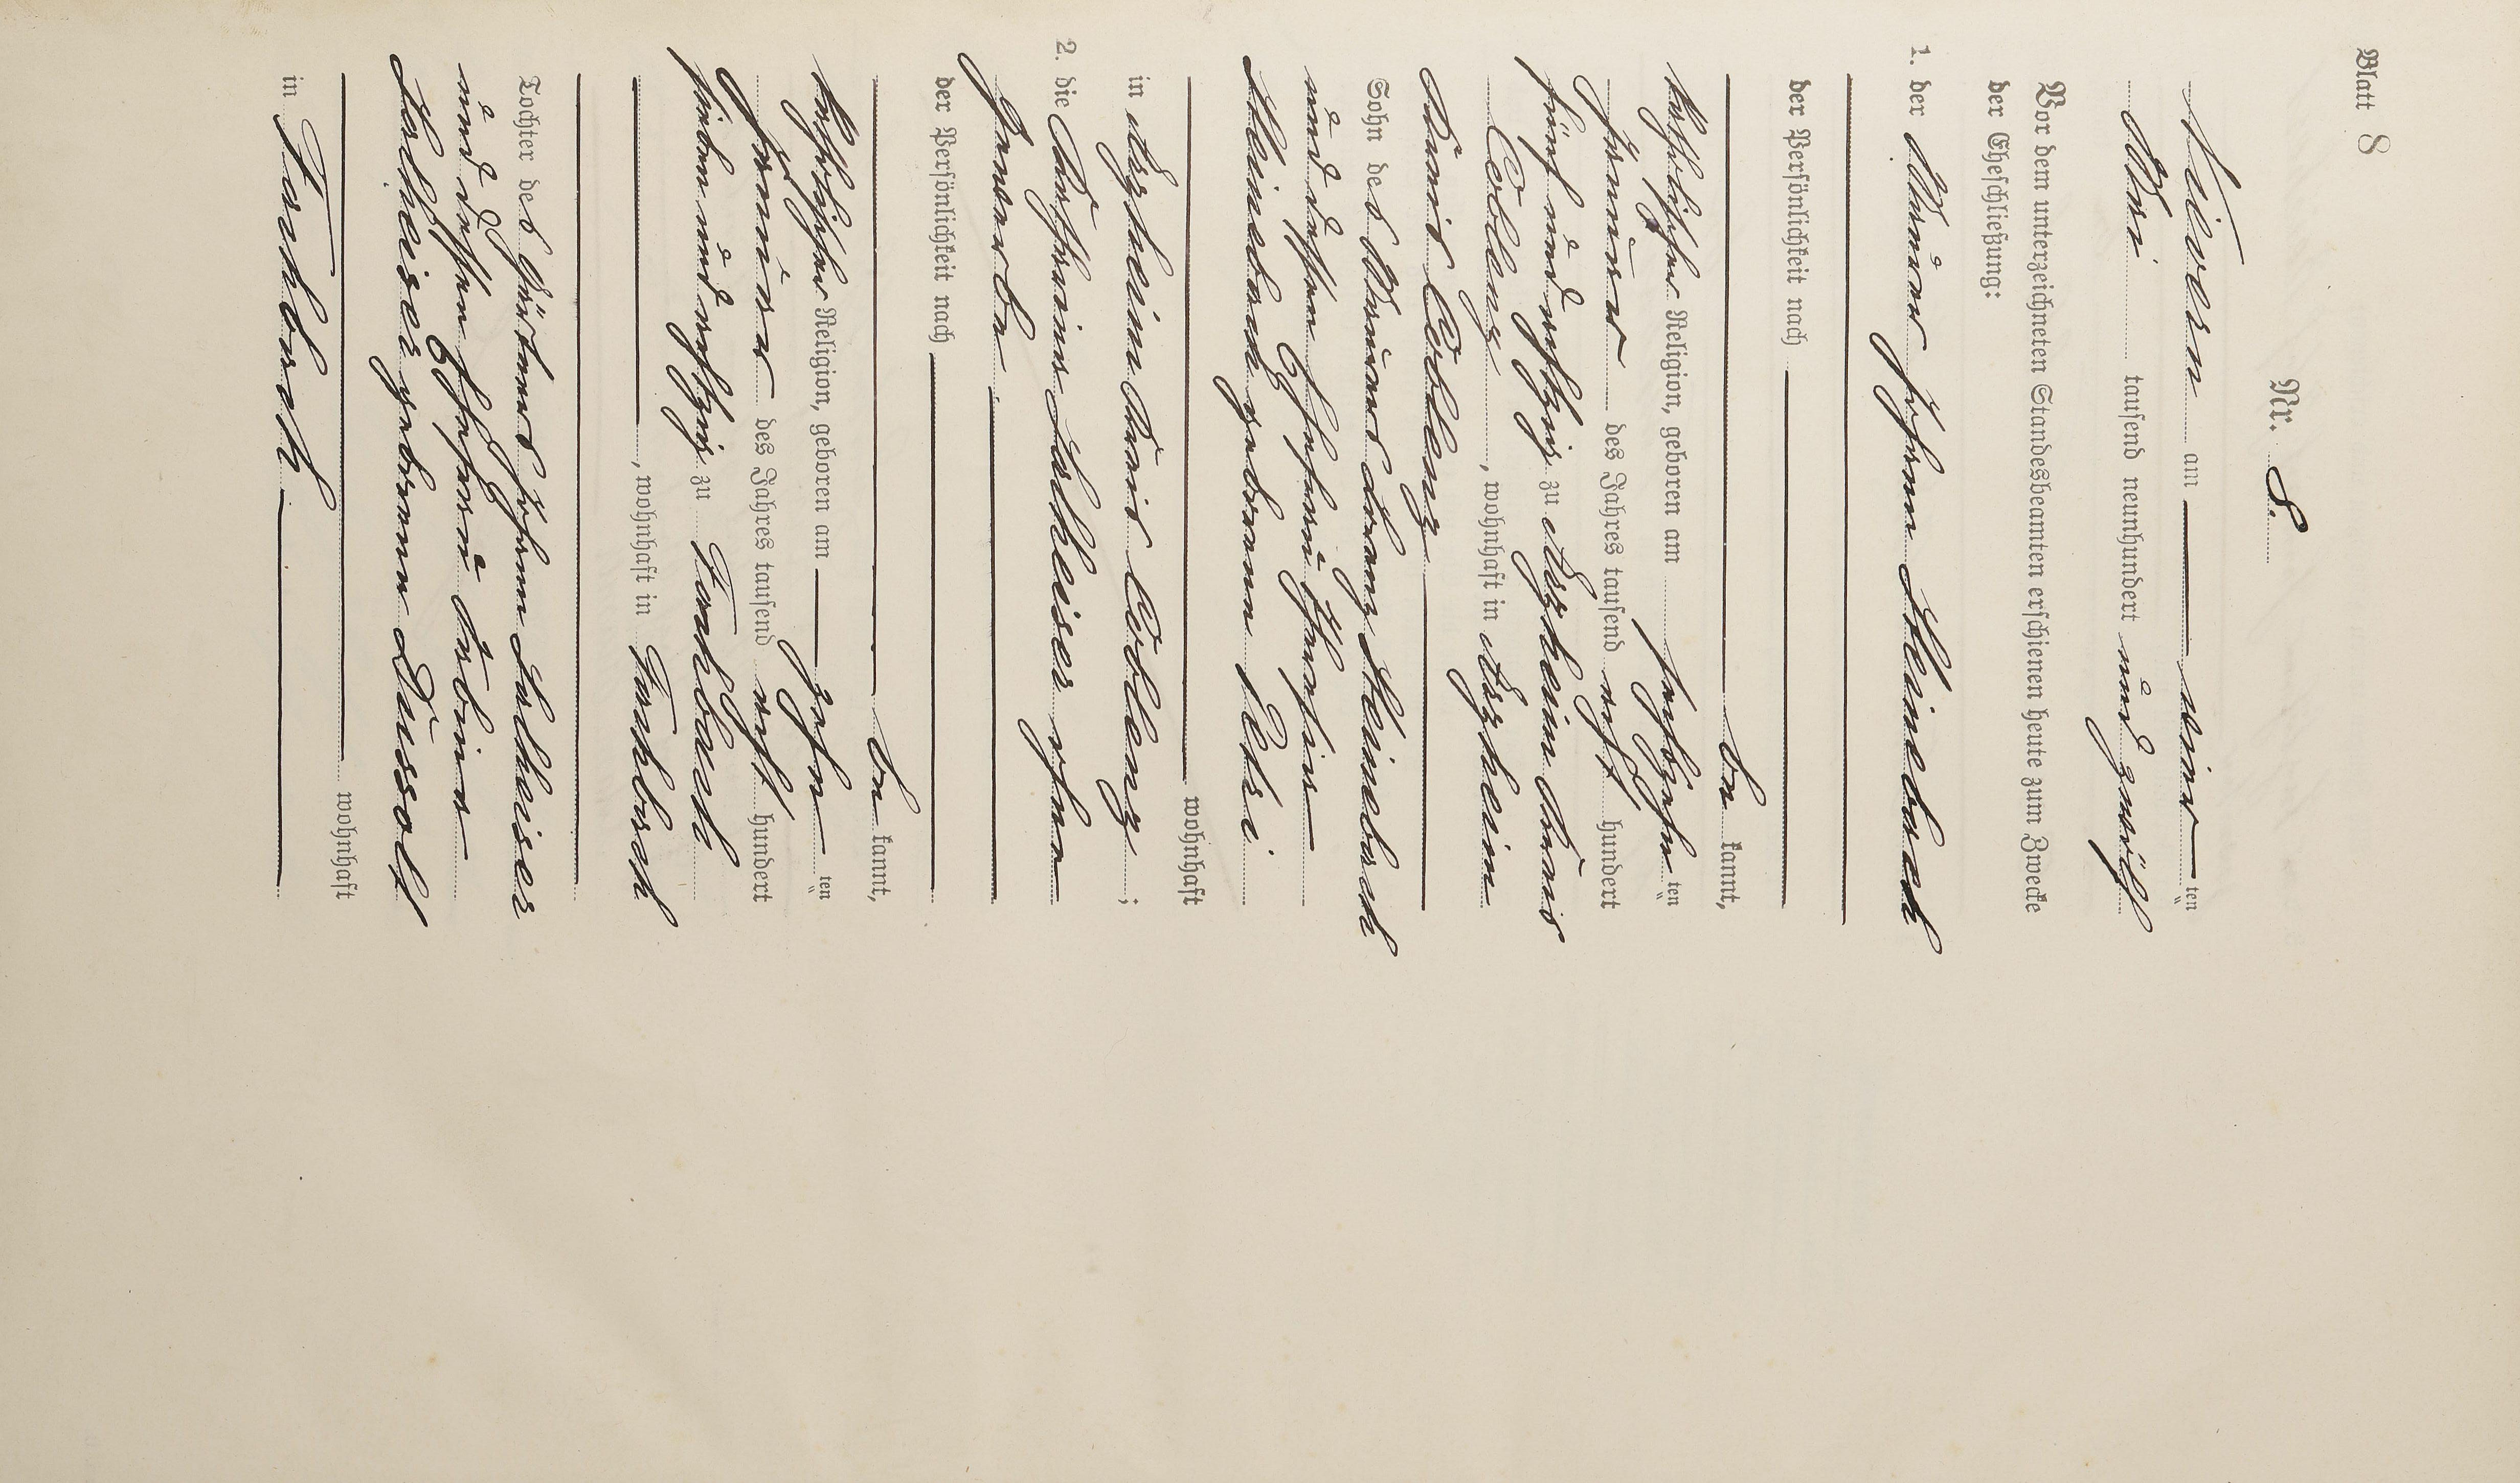 Blatt 8
Nr. 8.
Nievern am vier ten
Mai tausend neunhundert und zwölf
Vor dem unterzeichneten Standesbeamten erschienen heute zum Zwecke
der Eheschließung:
1. der Maurer Johann Kleinebach
der Persönlichkeit nach
be kannt,
katholischer Religion, geboren am sechszehn ten
Januar des Jahres tausend acht hundert
fünf und achtzig zu Arzheim Kreis
Coblenz, wohnhaft in Arzheim
Kreis Coblenz
Sohn des Maurers Franz Kleinebach
und dessen Ehefrau
Kleinebach geborene Petri
wohnhaft
in Arzheim Kreis Coblenz;
2. die Katharina Salheiser ohne
Gewerbe
der Persönlichkeit nach
be kannt,
katholischer Religion, geboren am zehn ten
Februar des Jahres tausend acht hundert
sieben und achtzig zu Fachbach
, wohnhaft in Fachbach
Tochter des Gärtners Johann Salheiser
und dessen Ehefrau
Salheiser geborene
wohnhaft
in Fachbach